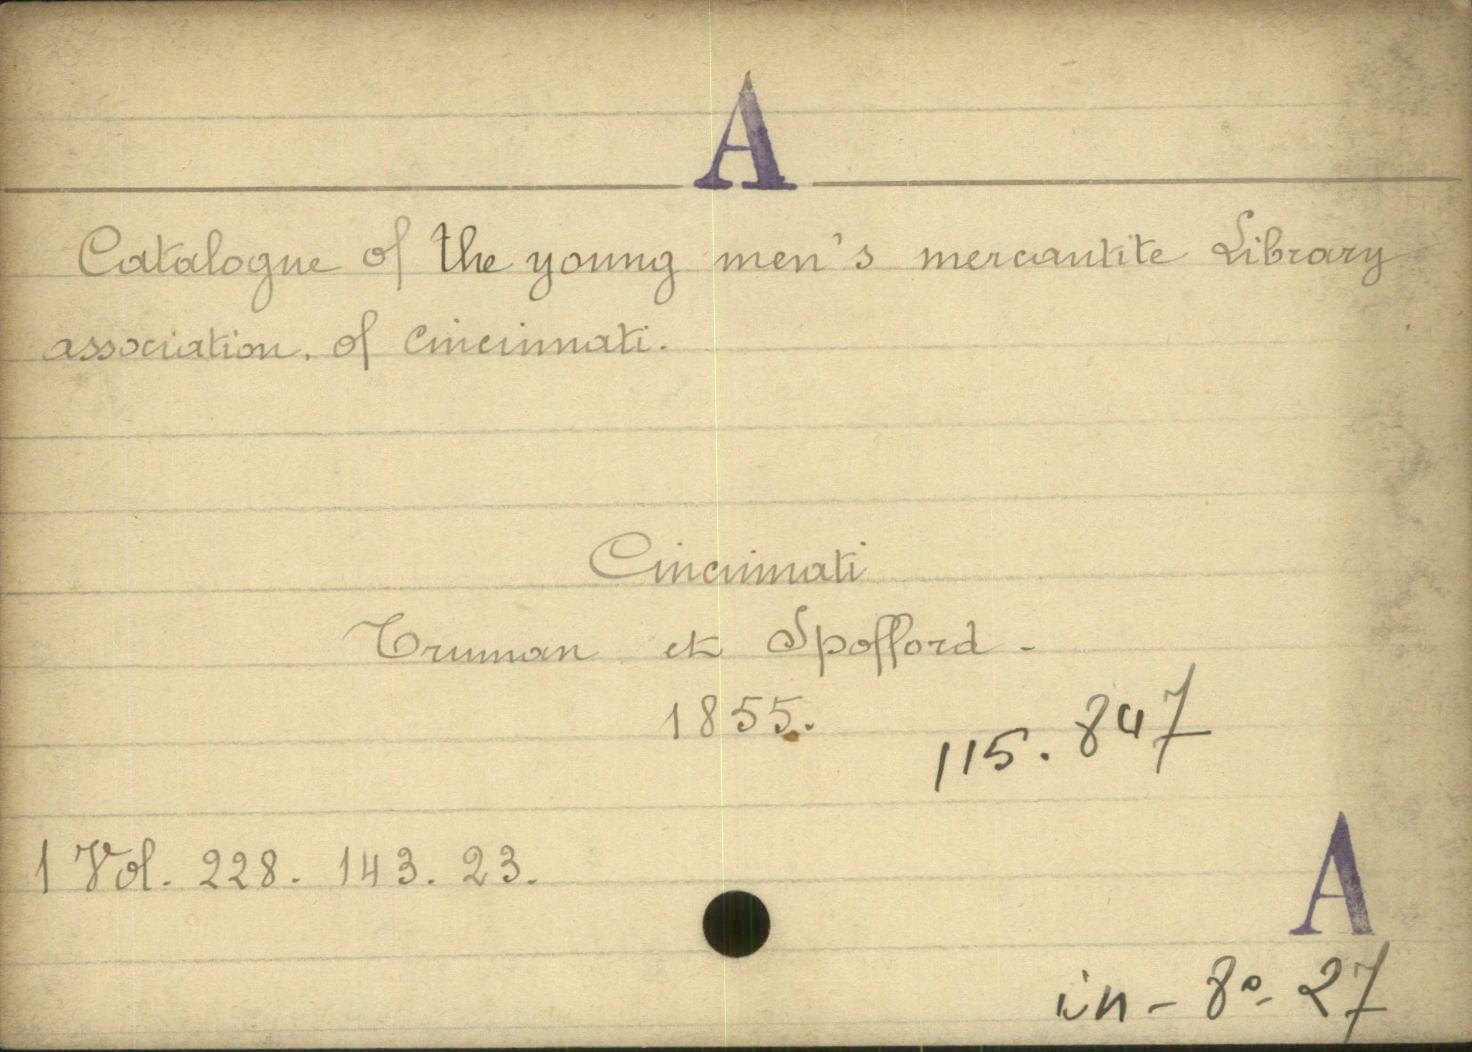 A
Catalogue of the young men's mercantite Library
association. of Cincinnati.
Cincinnati
Truman et Spofford -
1855.
115. 847
1 Vol. 228. 143. 23.
A
in - 8º- 27